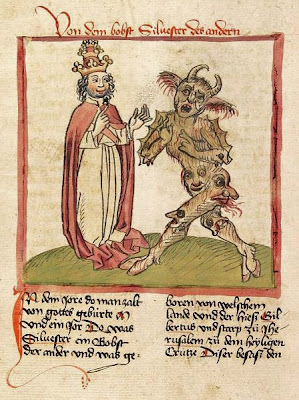 Von dem bobst Siluester des andern
IN dem Jore do man zalt
von gottes geburte M
vnd em Jor Do was
Siluester ein Bobst
der ander vnd was ge⸗
boren von welschem
lande vnd der hieß Gil
bertus vnd starp zu Jhe
rusalem zu dem heyligen
Crutze Diser besaß den